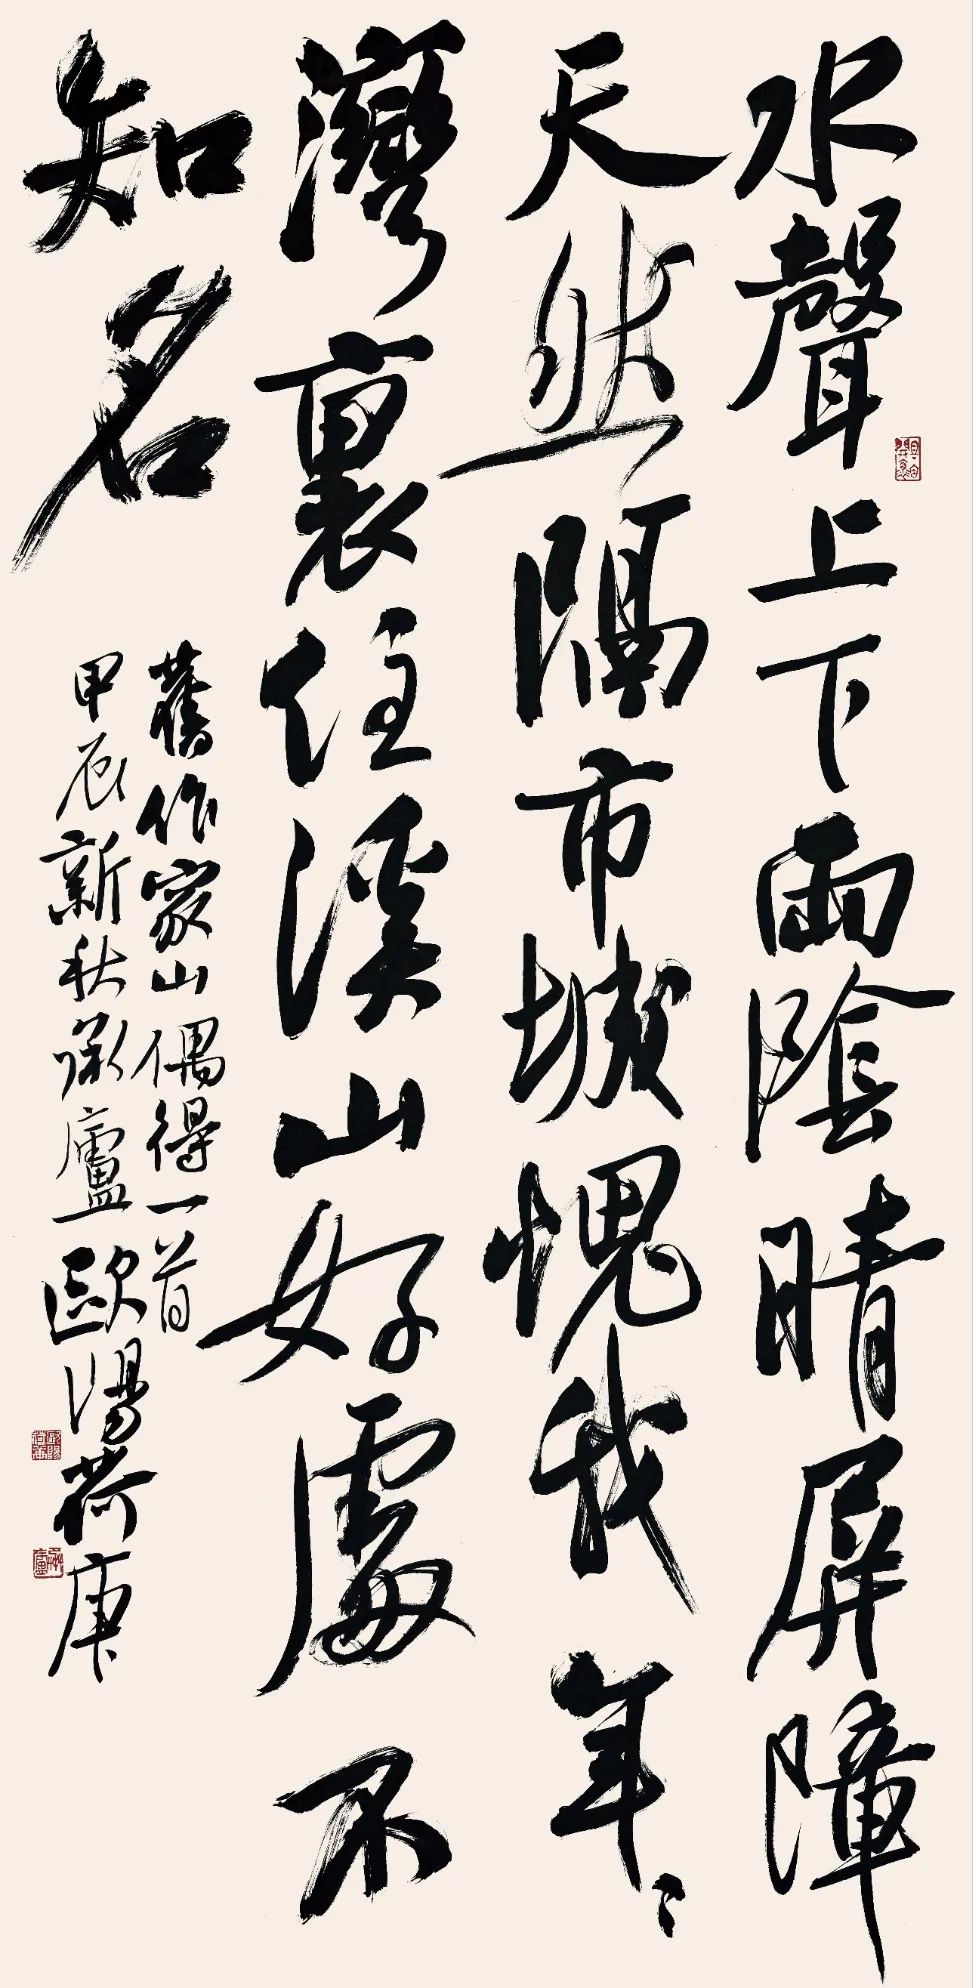 水聲上下雨陰晴屏障
天然隔市城愧我年々
灣裏住溪山好處不
知名
舊作家山偶得一首
甲辰新秋承廬歐陽荷庚